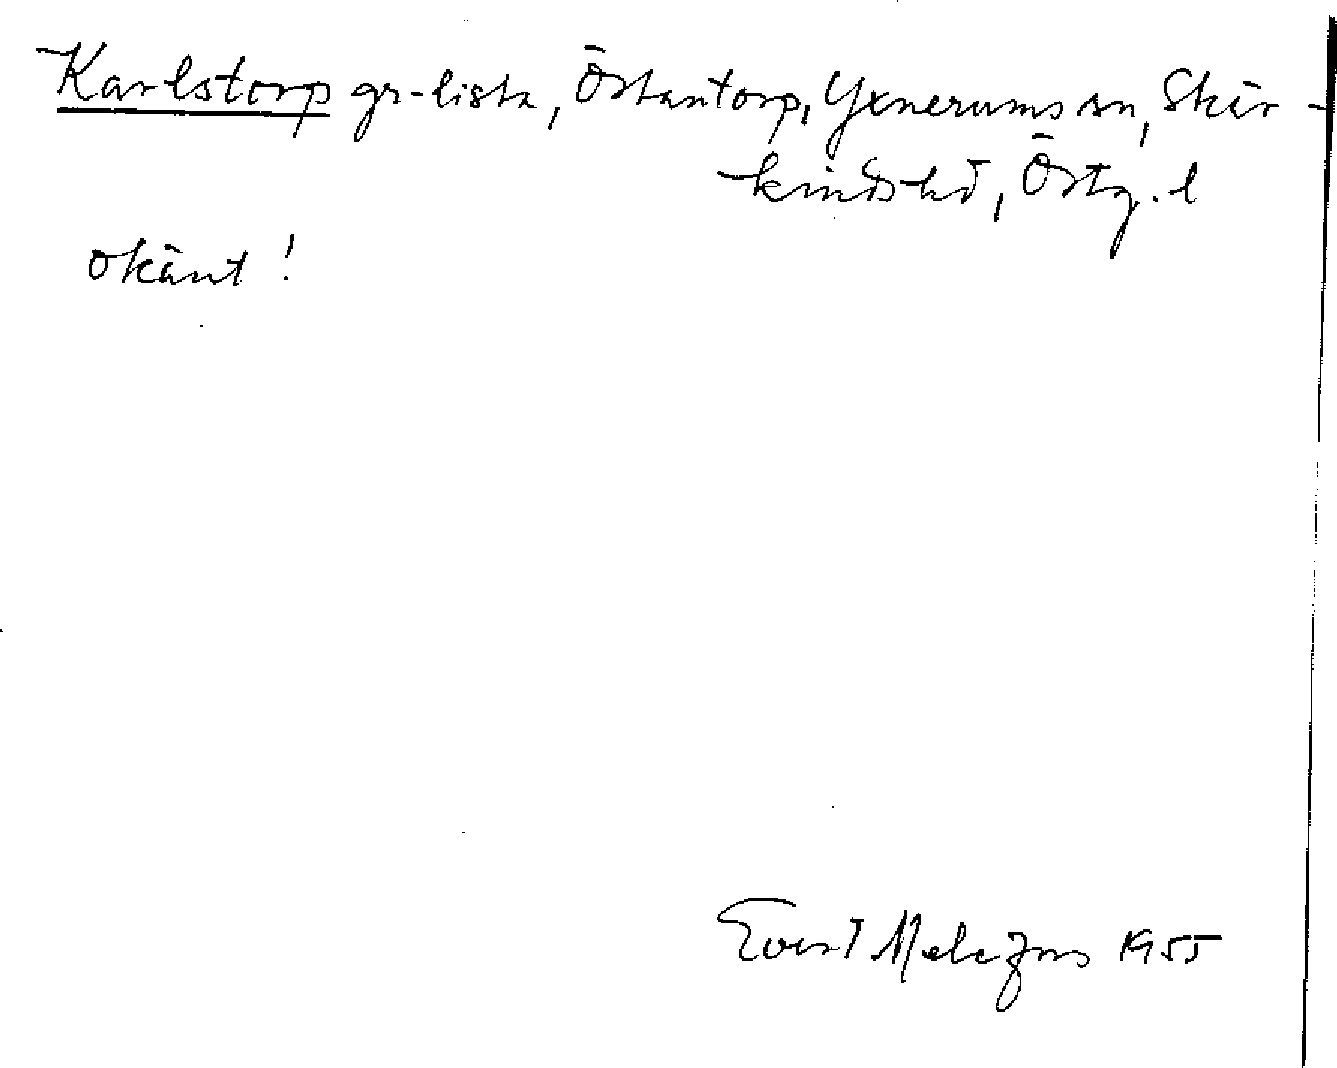 Karlstorp gr-lista, Östantorp, Yxnerums sn, Skär-
kinds hd, Östg. l
okänt!
Evert Melefors 1955